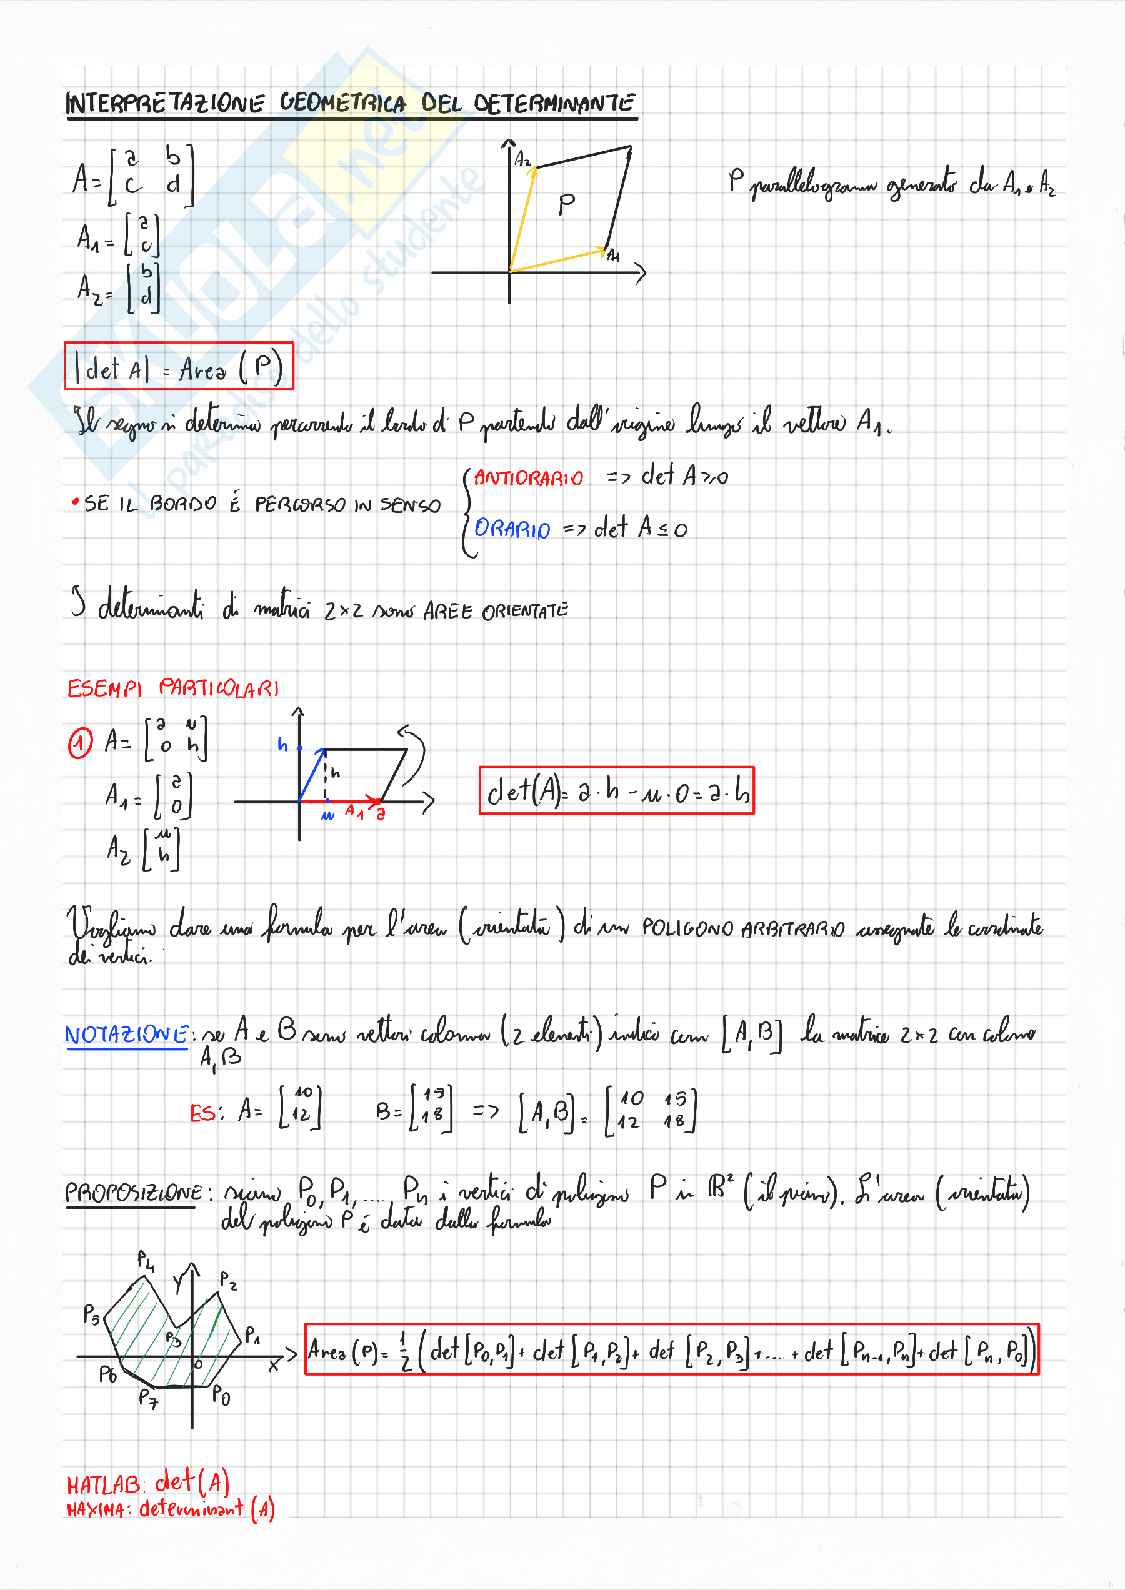 INTERPRETAZIONE GEOMETRICA DEL DETERMINANTE
A = [a b
c d]
A1 = [a
c]
A2 = [b
d]
A2
P
A1
P parallelogramma generato da A1 e A2
|det A| = Area (P)
Il segno si determina percorrendo il bordo di P partendo dall'origine lungo il vettore A1.
• SE IL BORDO É PERCORSO IN SENSO
ANTIORARIO => det A ≥ 0
ORARIO => det A ≤ 0
I determinanti di matrici 2×2 sono AREE ORIENTATE
ESEMPI PARTICOLARI
① A = [a u
0 h]
A1 = [a
0]
A2 [u
h]
h
h
u A1 a
det(A) = a · h - u · 0 = a · h
Vogliamo dare una formula per l'area (orientata) di un POLIGONO ARBITRARIO assegnate le coordinate
dei vertici.
NOTAZIONE: se A e B sono vettori colonna (2 elementi) indico com [A, B] la matrice 2×2 con colonne
A, B
ES: A = [10
12] B = [15
18] => [A, B] = [10 15
12 18]
PROPOSIZIONE: siano P0, P1, .... Pn i vertici di poligono P in ℝ² (il piano). L'area (orientata)
del poligono P é data dalla formula
P4
Y
P2
P5
P3
P1
0
X
P6
P7
P0
Area (P) = 1/2 (det [P0, P1] + det [P1, P2] + det [P2, P3] + ... + det [Pn-1, Pn] + det [Pn, P0])
MATLAB: det(A)
MAXIMA: determinant (A)
SKUOLA.net
il paradiso dello studente